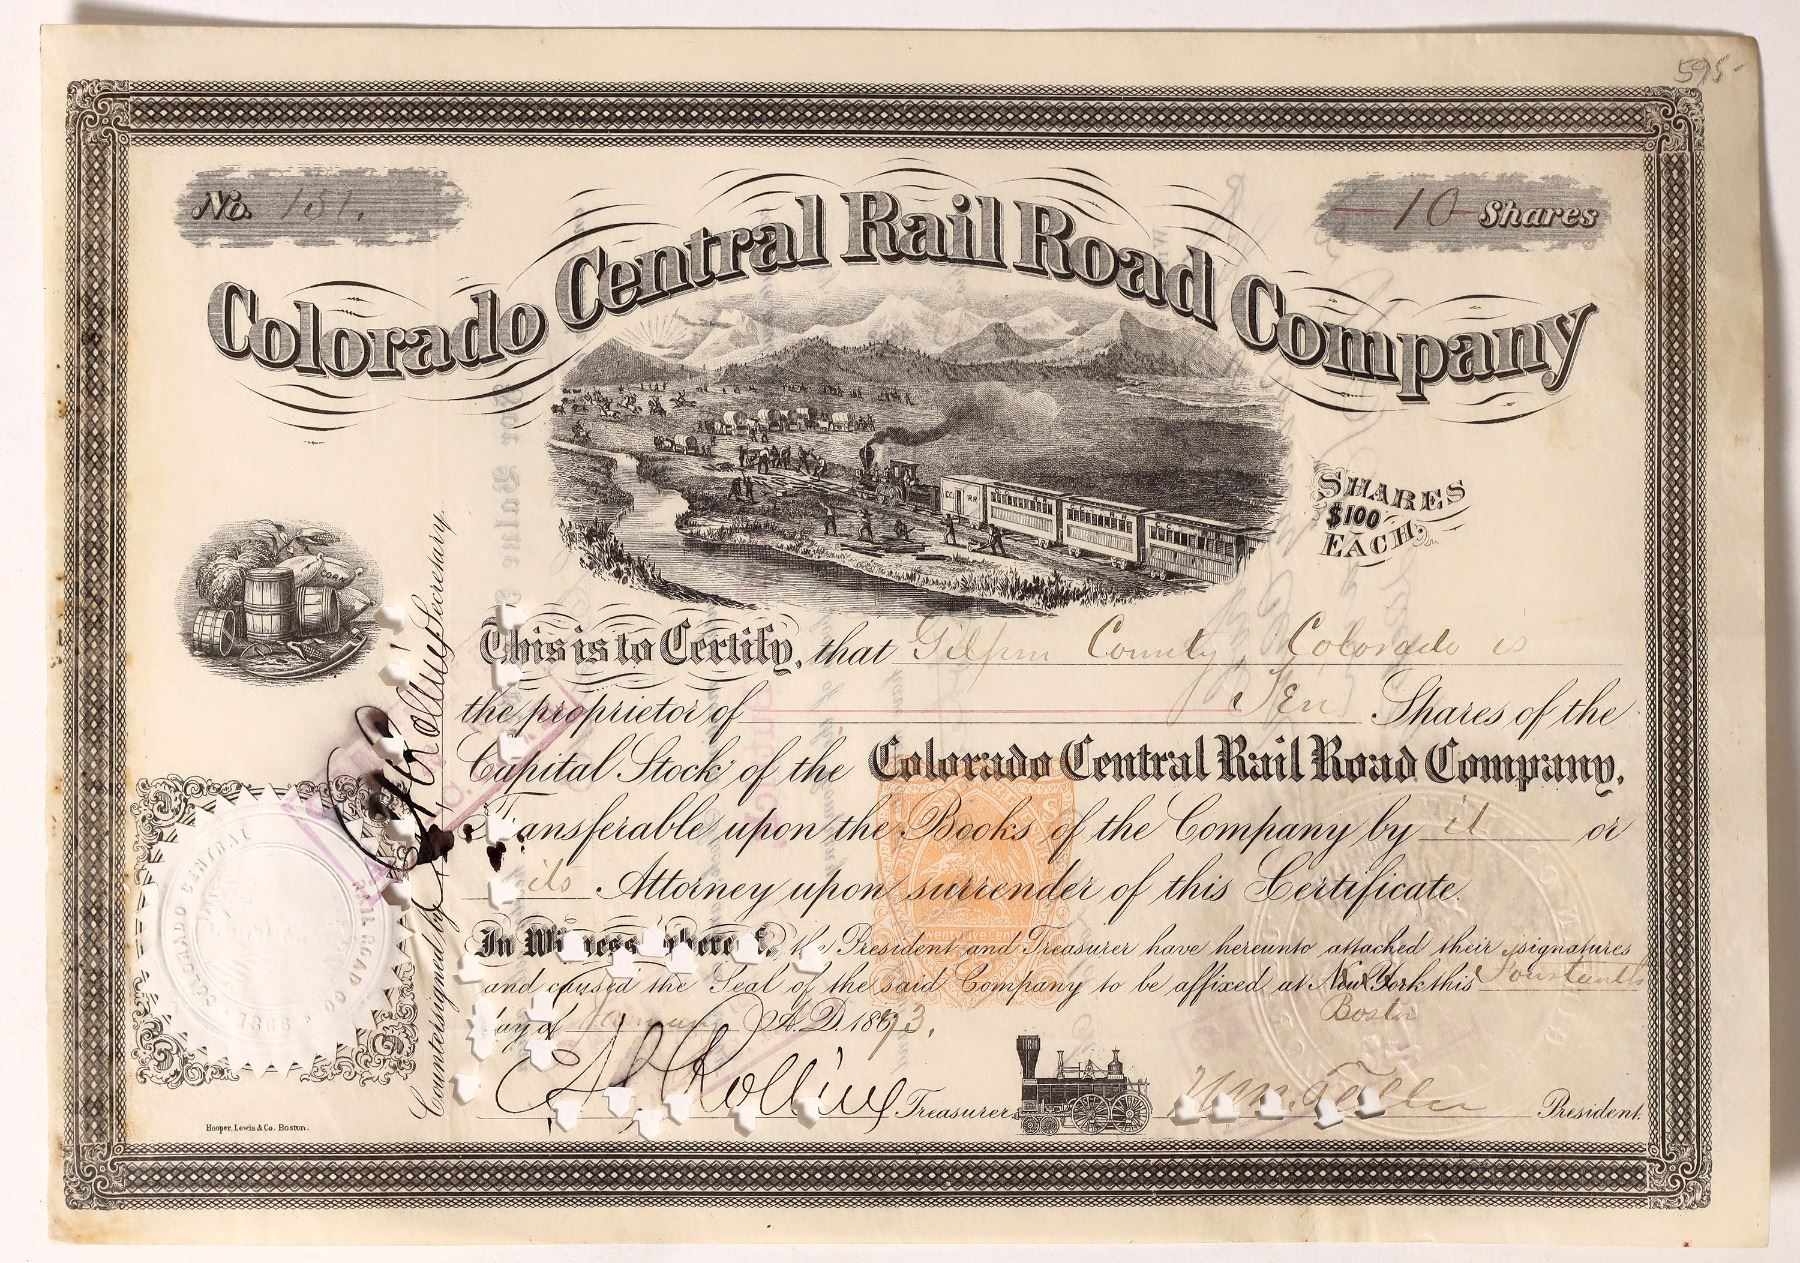 595-
No. 151.
10 Shares
Colorado Central Rail Road Company
SHARES
$100
EACH,
C.C. R.R.
This is to Certify, that Gilpin County, Colorado is
the proprietor of Ten Shares of the
Capital Stock of the Colorado Central Rail Road Company,
Transferable upon the Books of the Company by it or
its Attorney upon surrender of this Certificate.
In Witness Whereof, the President and Treasurer have hereunto attached their signatures
and caused the Seal of the said Company to be affixed at New York this Fourteenth
Boston
day of January A.D. 1873.
Treasurer
Wm. Teller President
Countersigned by Secretary.
COLORADO CENTRAL RAIL ROAD CO. 1866
Twenty Five Cents
Hooper, Lewis & Co. Boston.